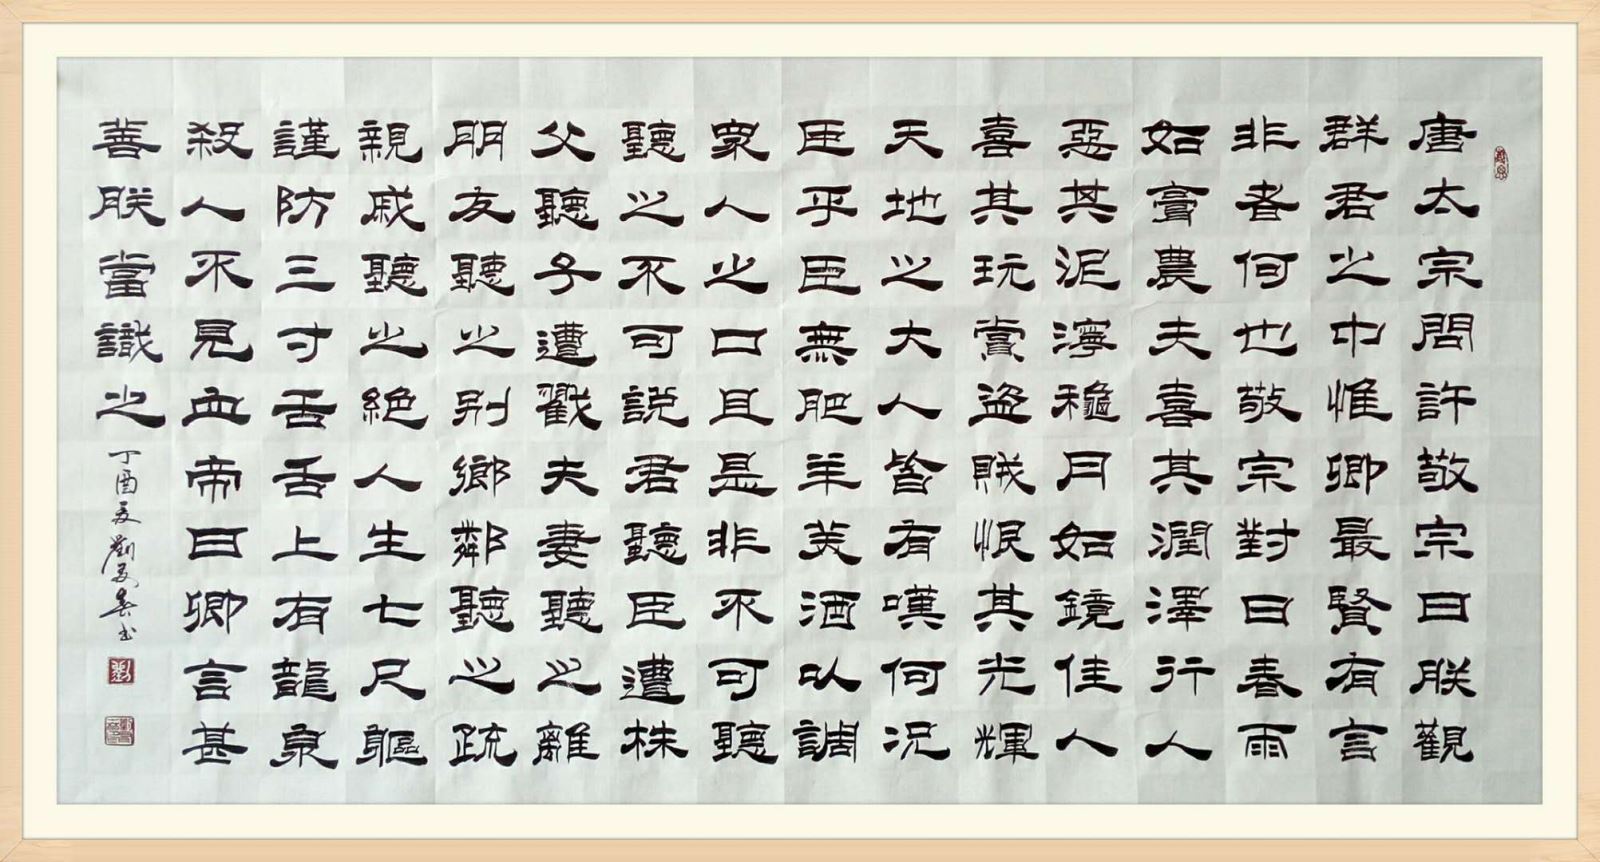 唐太宗問許敬宗曰朕觀
群君之中惟卿最賢有言
非者何也敬宗對曰春雨
如膏農夫喜其潤澤行人
惡其泥濘穐月如鏡佳人
喜其玩賞盜賊恨其光輝
天地之大人皆有嘆何況
臣乎臣無肥羊美酒以調
眾人之口且是非不可聽
聽之不可說君聽臣遭株
父聽子遭戮夫妻聽之離
朋友聽之別鄉鄰聽之疏
親戚聽之絕人生七尺軀
謹防三寸舌舌上有龍泉
殺人不見血帝曰卿言甚
善朕當識之
丁酉夏劉書
劉